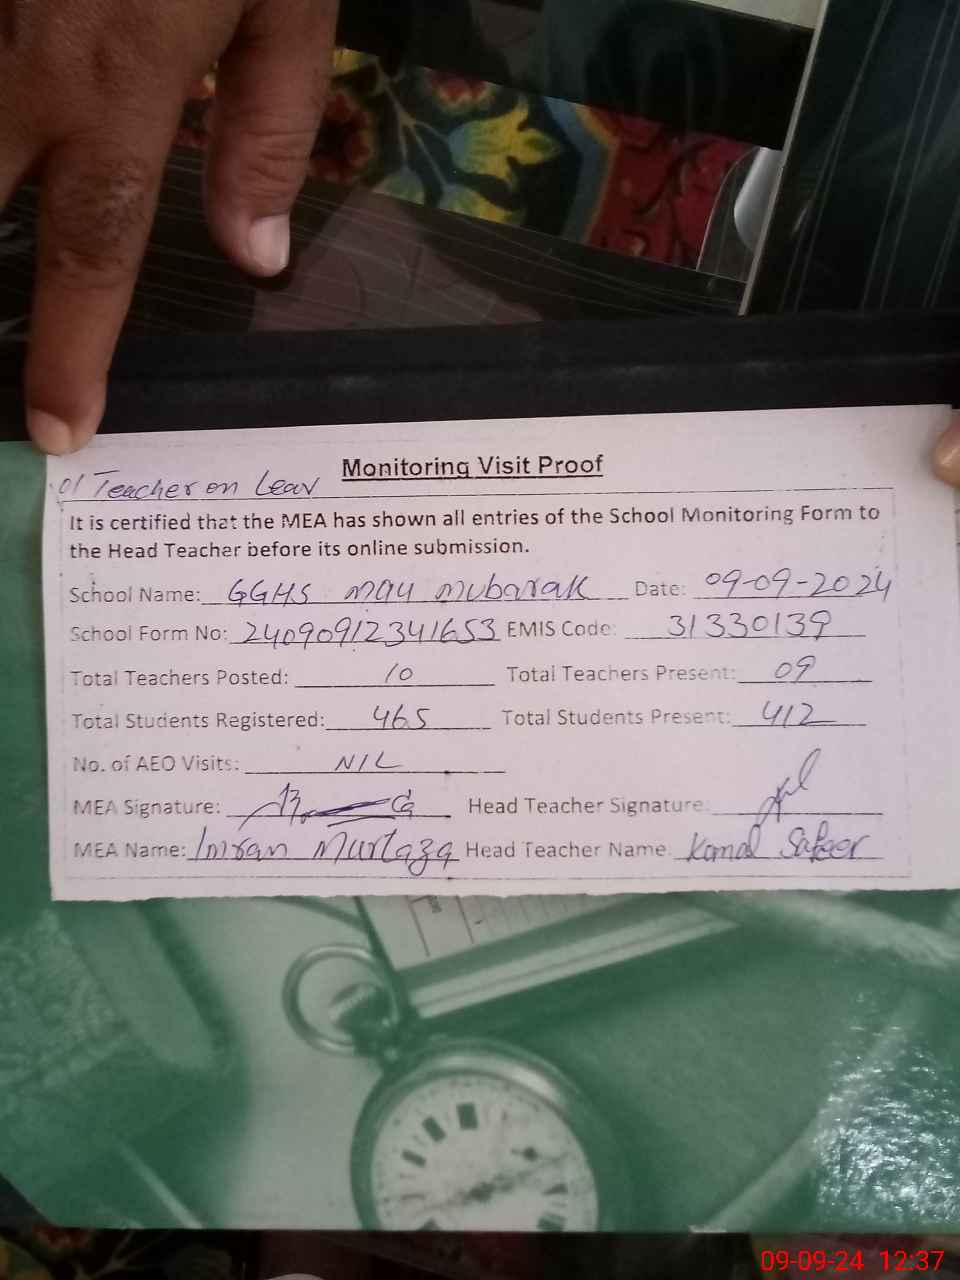 Monitoring Visit Proof
01 Teacher on Leav
It is certified that the MEA has shown all entries of the School Monitoring Form to
the Head Teacher before its online submission.
School Name: GGHS May Mubarak Date: 09-09-2024
School Form No: 24090912341653 EMIS Code: 31330139
Total Teachers Posted: 10 Total Teachers Present: 09
Total Students Registered: 465 Total Students Present: 412
No. of AEO Visits: NIL
MEA Signature: Head Teacher Signature:
MEA Name: Imran Murtaza Head Teacher Name: Komal Safeer
09-09-24 12:37